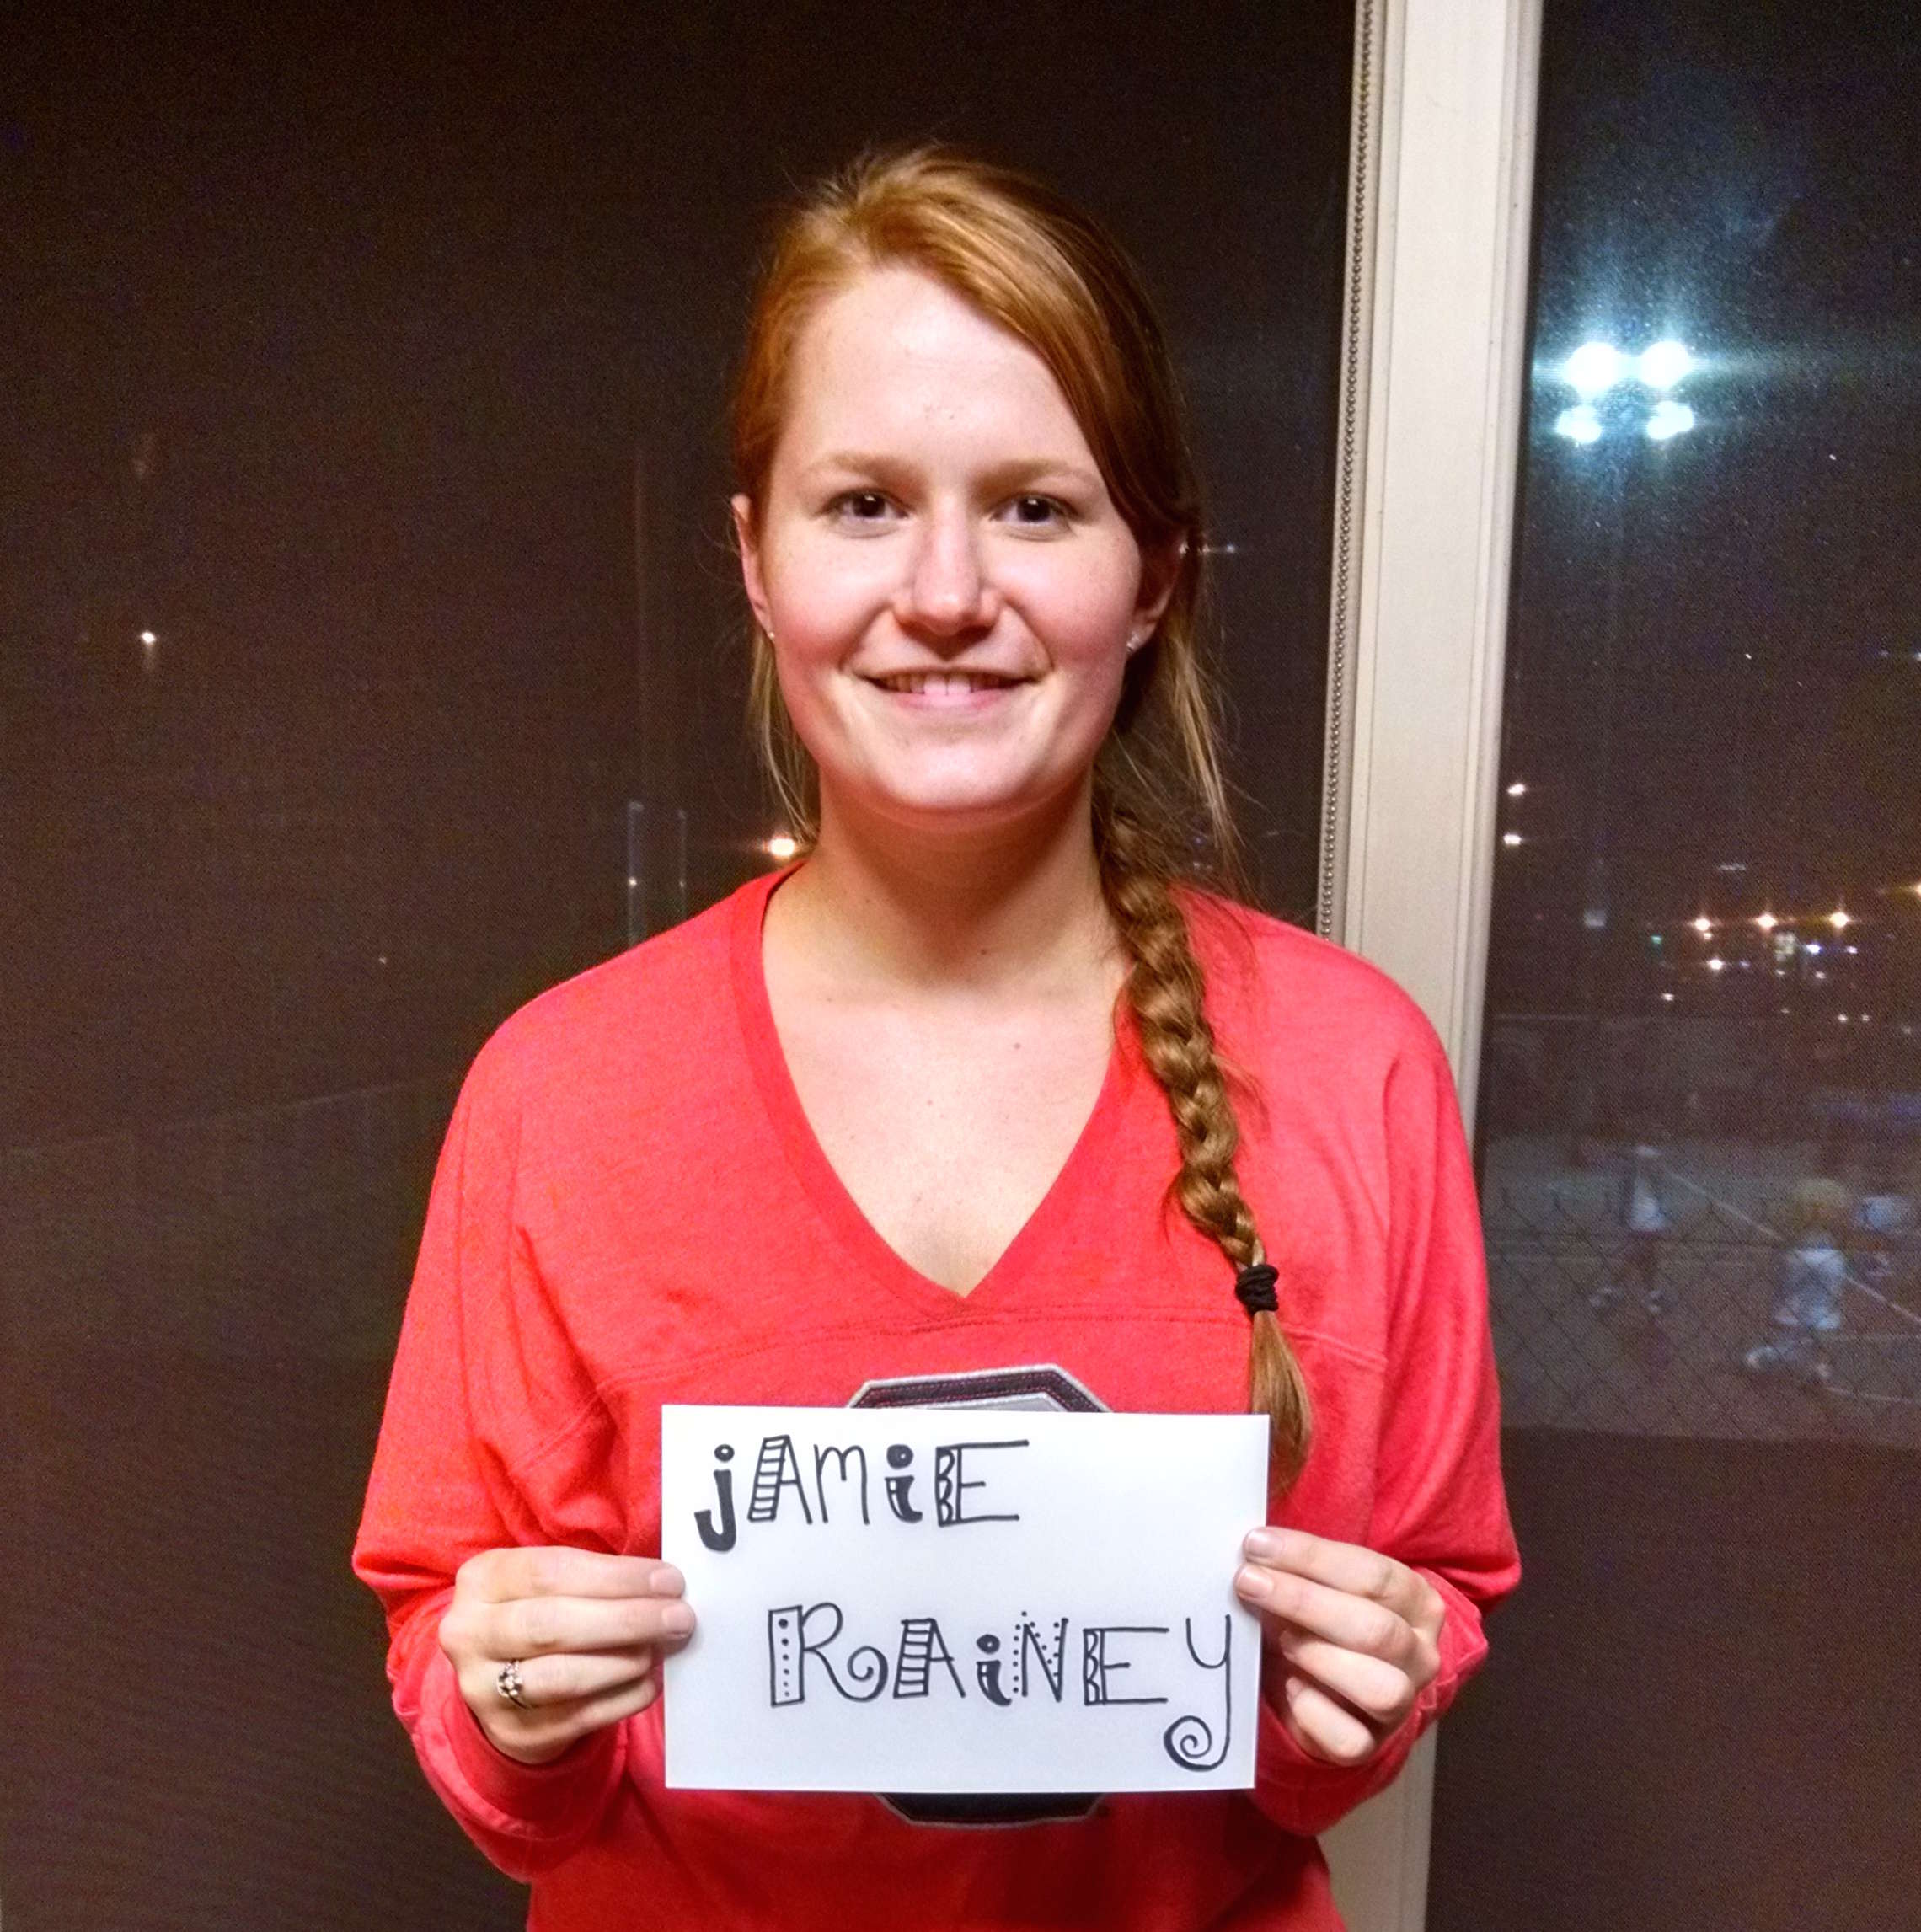 jAMiE
RAiNEy